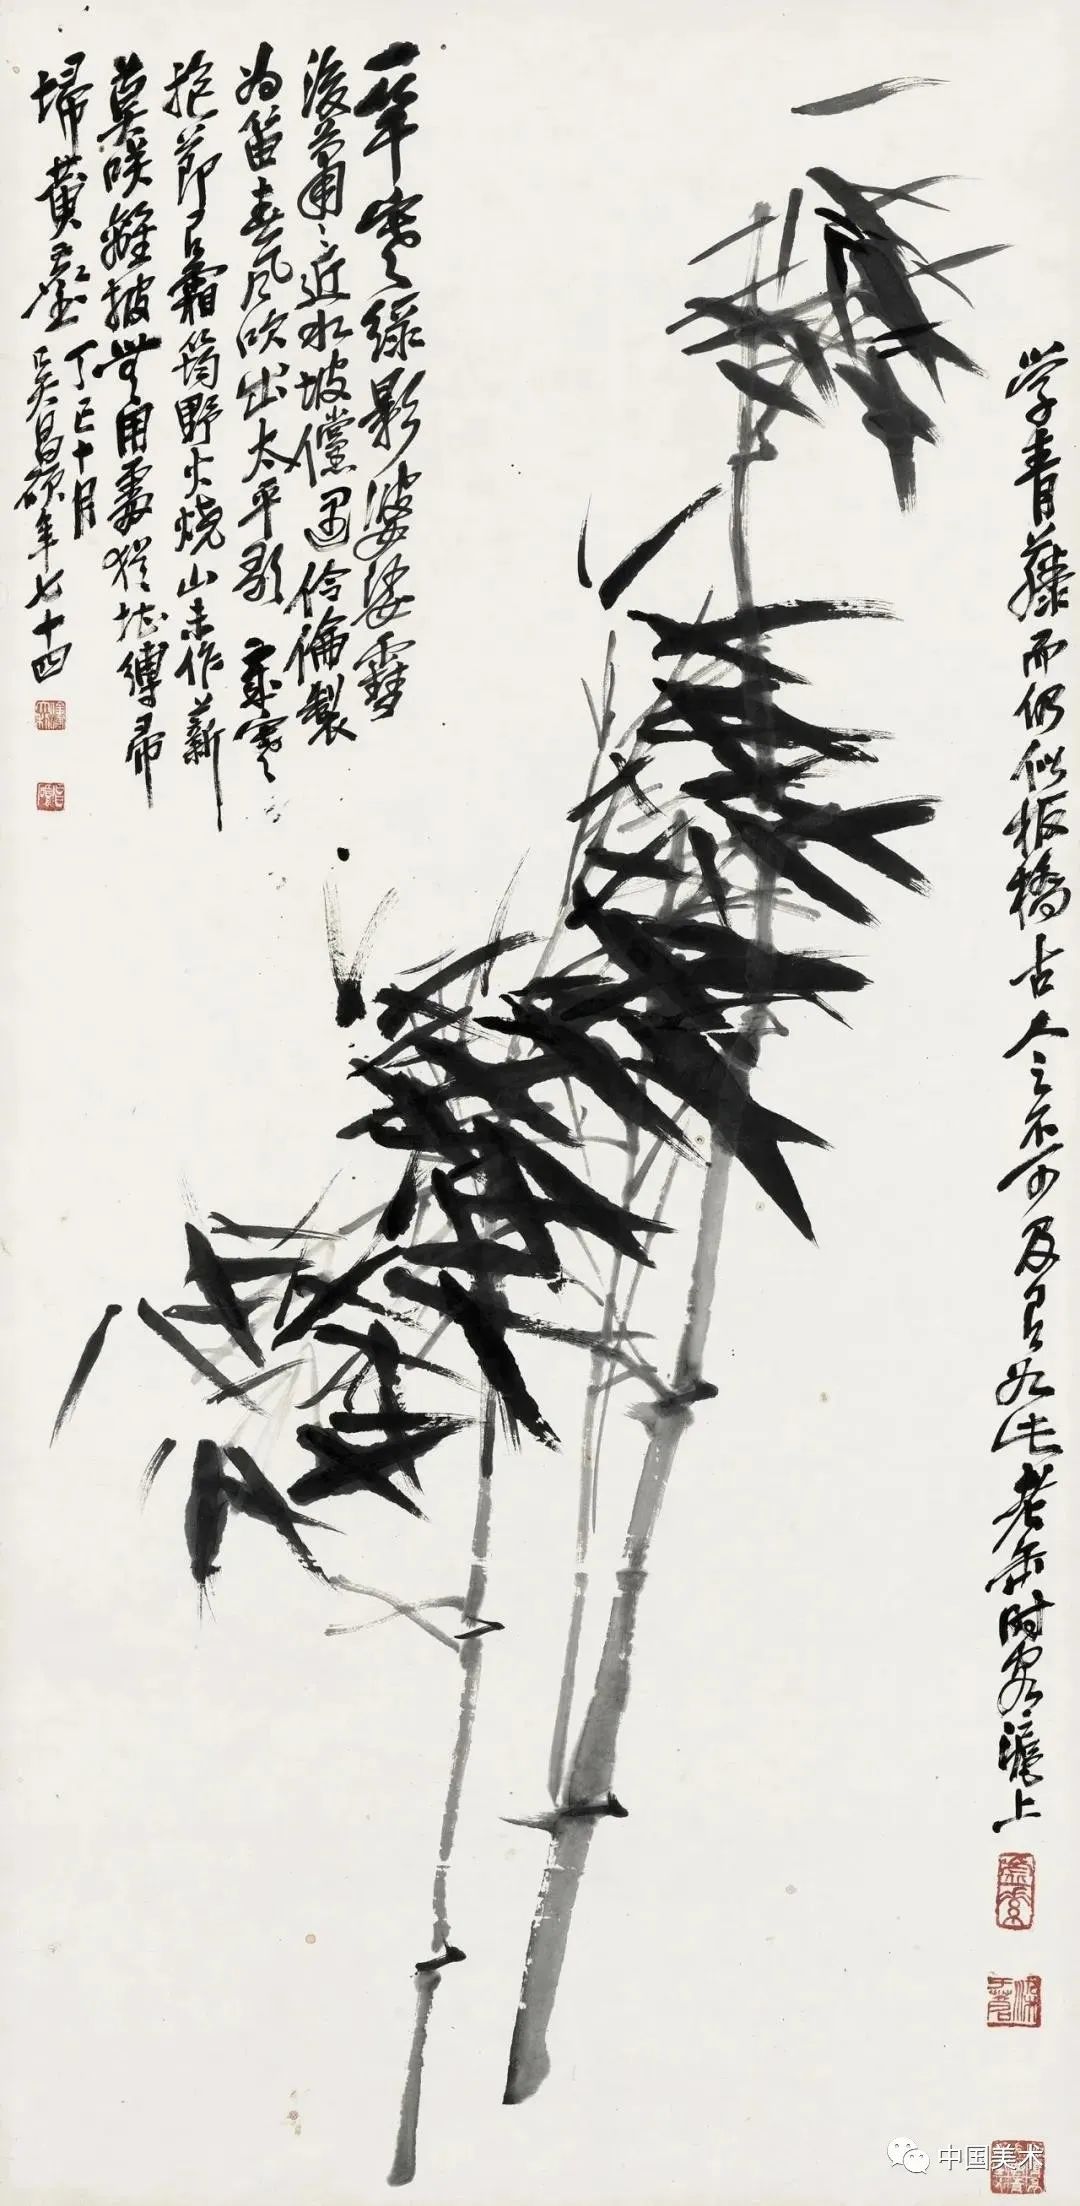 学青藤而仍似板橋古人之不可及有如此老缶時客滬上
一竿寒綠影婆娑雪
後蕭〻近水坡儻遇伶倫製
为笛春風吹出太平歌 歲寒
抱節有霜筠野火燒山未作薪
莫咲離披無用處猶堪縛帚
埽黄塵 丁巳十月
吴昌碩年七十四
中国美术